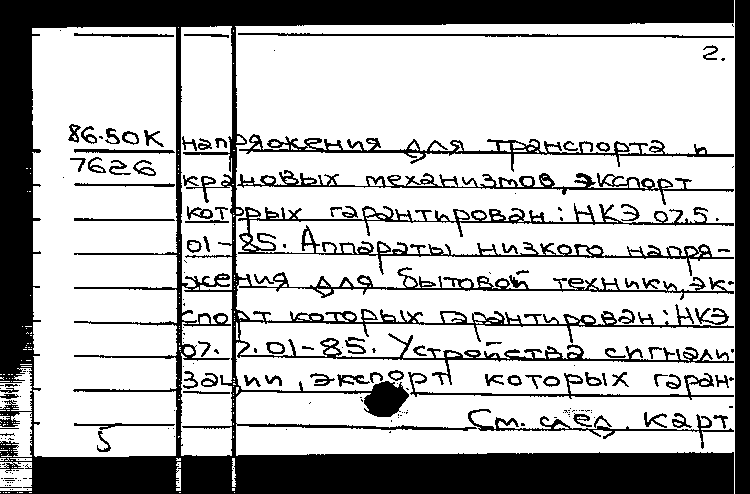 2.
86.50К
7626
напряжения для транспорта и
крановых механизмов, экспорт
которых гарантирован: НКЭ 07.5.
01-85. Аппараты низкого напря-
жения для бытовой техники, эк-
спорт которых гарантирован: НКЭ
07.7.01-85. Устройства сигнали
зации, экспорт которых гаран-
См. след. карт.
5